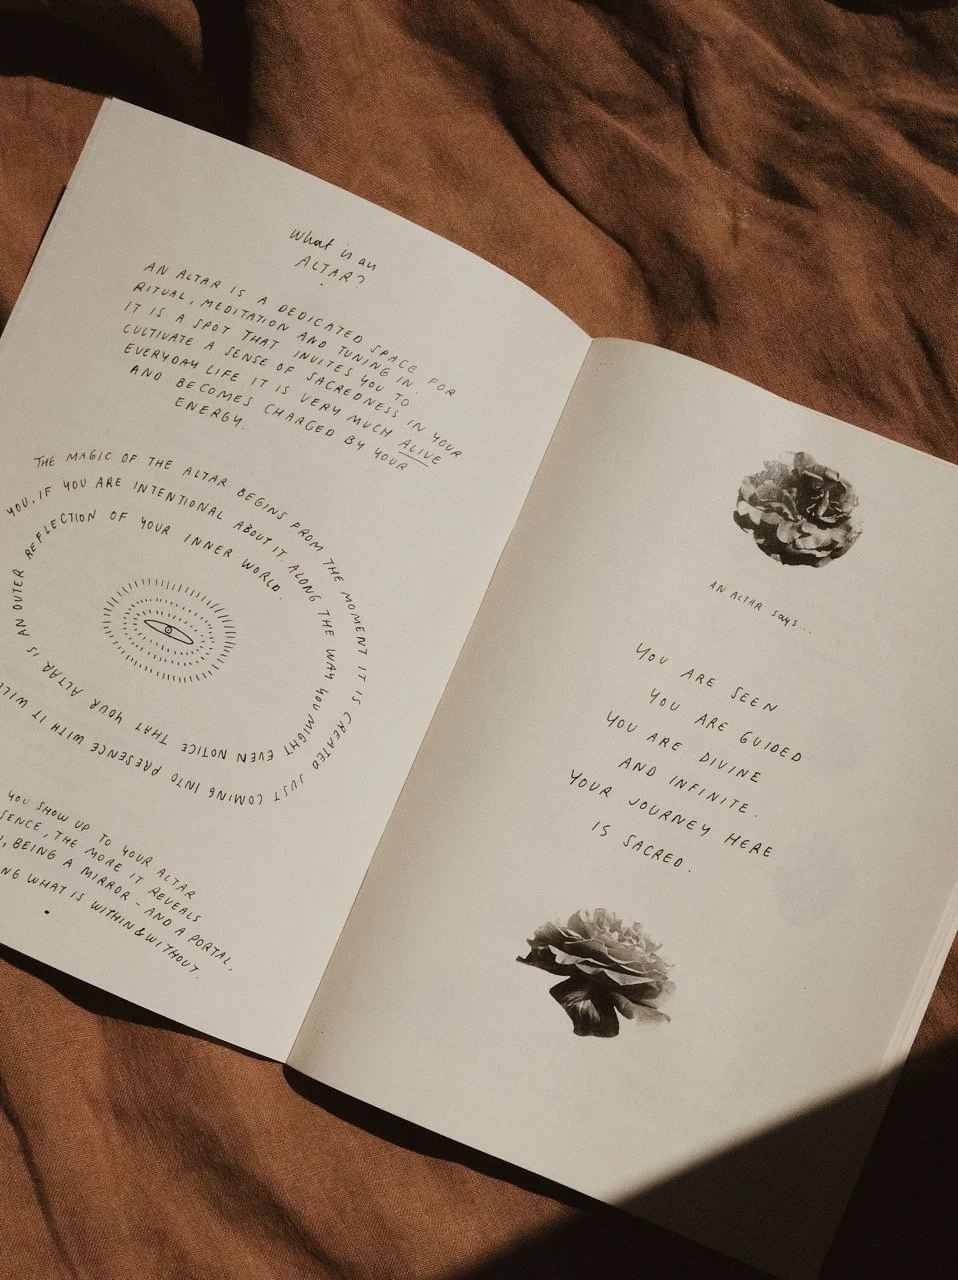 What is an
ALTAR?
AN ALTAR IS A DEDICATED SPACE FOR
RITUAL, MEDITATION AND TUNING IN.
IT IS A SPOT THAT INVITES YOU TO
CULTIVATE A SENSE OF SACREDNESS IN YOUR
EVERYDAY LIFE. IT IS VERY MUCH ALIVE
AND BECOMES CHARGED BY YOUR
ENERGY.
THE MAGIC OF THE ALTAR BEGINS FROM THE MOMENT IT IS CREATED JUST COMING INTO PRESENCE WITH IT
YOU, IF YOU ARE INTENTIONAL ABOUT IT. ALONG THE WAY YOU MIGHT EVEN NOTICE THAT YOUR ALTAR IS AN OUTER REFLECTION OF YOUR INNER WORLD.
YOU SHOW UP TO YOUR ALTAR
, THE MORE IT REVEALS
, BEING A MIRROR - AND A PORTAL,
WHAT IS WITHIN & WITHOUT.
AN ALTAR says...
YOU ARE SEEN
YOU ARE GUIDED
YOU ARE DIVINE
AND INFINITE.
YOUR JOURNEY HERE
IS SACRED.